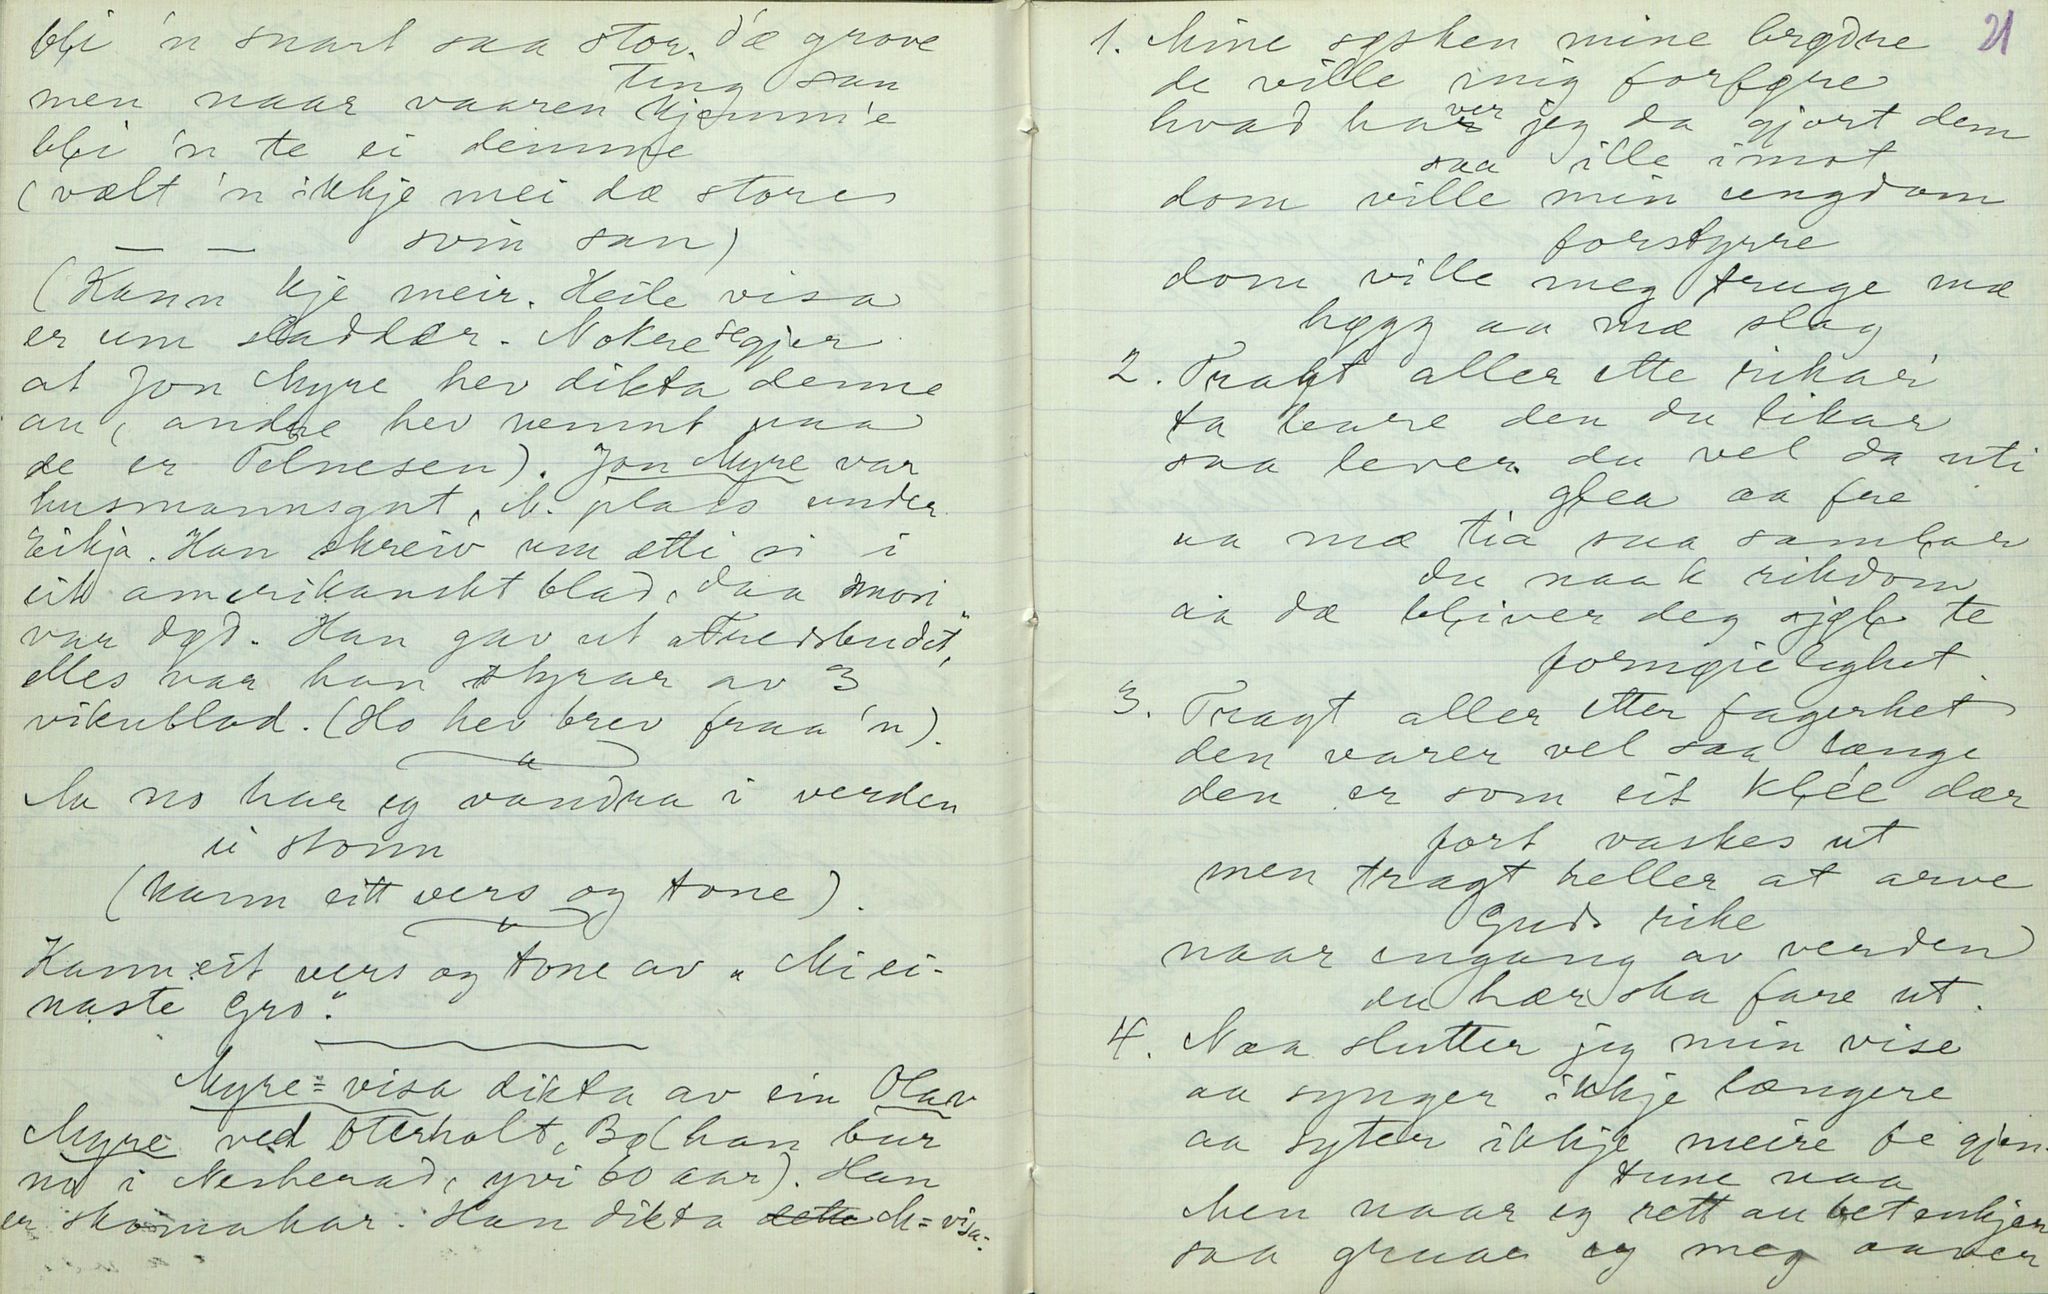 bli 'n snart saa stor. d'æ grove
ting san
men naar vaaren kjemm'e
bli 'n te ei demme
(vælt 'n ikkje mei dæ store
svin san)
— —
(Kann kje meir. Heile visa
er um skadlær. Nokre segjer
at Jon Myre hev dikta denne
au, andre hev nemnt paa
de er Telnesen). Jon Myre var
husmannsgut, M. plass under
Eikja. Han skreiv um ætti si i
eit amerikanskt blad, daa mori
var død. Han gav ut „Fredsbudet",
elles var han styrar av 3
vikublad. (Ho hev brev fraa 'n).
Aa no har eg vandra i verden
ei stonn
(kann eitt vers og tone).
Kann eit vers og tone av „Mi ei-
naste Gro".
Myre=visa dikta av ein Olav
Myre ved Oterholt, Bø (han bur
no i Nesherad, yvi 60 aar). Han
er skomakar. Han dikta dette M=visa:
21
1. Mine søsken mine brødre
de ville mig forføre
hvad haver jeg da gjort dem
saa ille imot
dom ville min ungdom
forstyrre
dom ville meg truge mæ
høgg aa mæ slag
2. Tragt aller ette rikari
ta bare den du likar
saa lever du vel da uti
glea aa fre
aa mæ tia saa samlar
du naak rikdom
aa dæ bliver deg sjøl te
fornøielighet
3. Tragt aller etter fagerhet
den varer vel saa længe
den er som eit klée dær
fort vaskes ut
men tragt heller at arve
Guds rike
naar engang av verden
du hær ska fare ut.
4. Naa slutter jeg min vise
aa synger ikkje længere
aa syter ikkje meire fe gjen-
tune naa
Men naar eg rett au betenkjer
saa gruar eg meg aaver